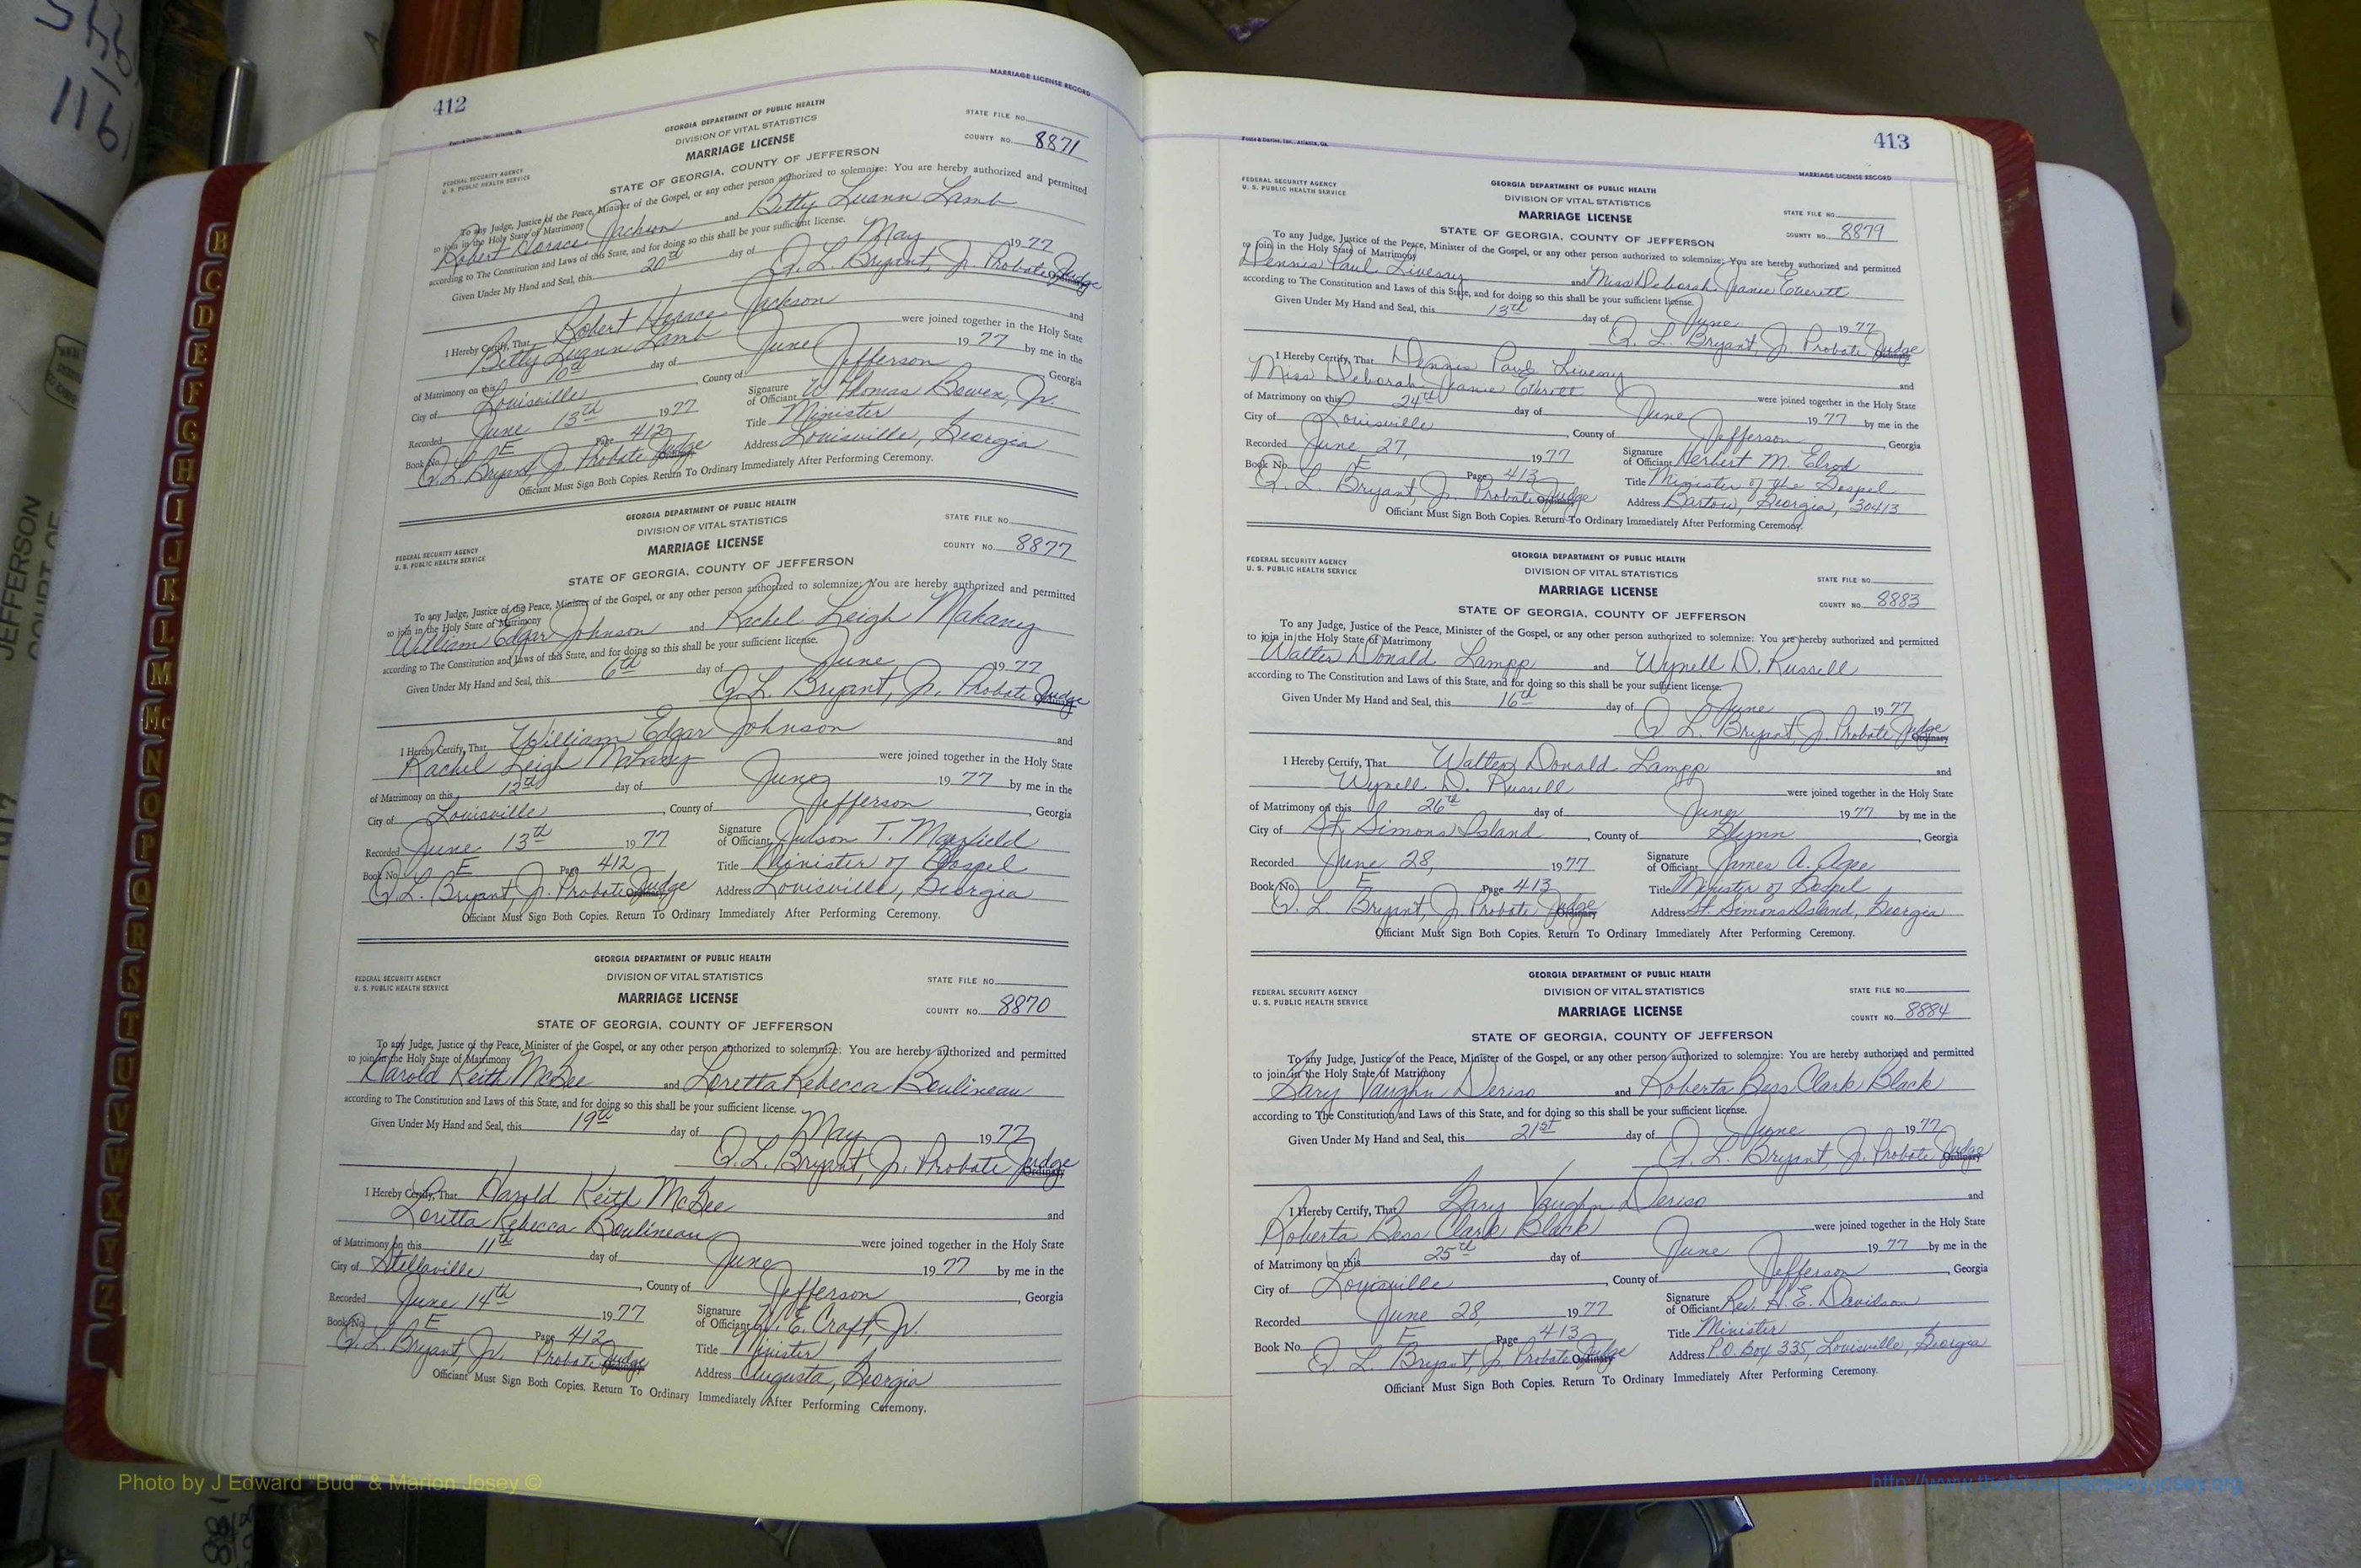 412
MARRIAGE LICENSE RECORD
GEORGIA DEPARTMENT OF PUBLIC HEALTH
DIVISION OF VITAL STATISTICS
MARRIAGE LICENSE
STATE FILE NO.
COUNTY NO. 8871
FEDERAL SECURITY AGENCY
U. S. PUBLIC HEALTH SERVICE
STATE OF GEORGIA, COUNTY OF JEFFERSON
To any Judge, Justice of the Peace, Minister of the Gospel, or any other person authorized to solemnize: You are hereby authorized and permitted
to join in the Holy State of Matrimony
Robert Horace Jackson and Betty Luann Lamb
according to The Constitution and Laws of this State, and for doing so this shall be your sufficient license.
Given Under My Hand and Seal, this 20th day of May 1977
Q. L. Bryant, Jr. Probate Judge
Ordinary
I Hereby Certify, That Robert Horace Jackson and
Betty Luann Lamb were joined together in the Holy State
of Matrimony on this 10th day of June 1977 by me in the
City of Louisville, County of Jefferson, Georgia
Recorded June 13th 1977
Signature of Officiant W. Thomas Bowen, Jr.
Book No. E Page 412
Title Minister
Q. L. Bryant, Jr. Probate Judge
Address Louisville, Georgia
Officiant Must Sign Both Copies. Return To Ordinary Immediately After Performing Ceremony.
GEORGIA DEPARTMENT OF PUBLIC HEALTH
DIVISION OF VITAL STATISTICS
MARRIAGE LICENSE
STATE FILE NO.
COUNTY NO. 8877
FEDERAL SECURITY AGENCY
U. S. PUBLIC HEALTH SERVICE
STATE OF GEORGIA, COUNTY OF JEFFERSON
To any Judge, Justice of the Peace, Minister of the Gospel, or any other person authorized to solemnize: You are hereby authorized and permitted
to join in the Holy State of Matrimony
William Edgar Johnson and Rachel Leigh Mahany
according to The Constitution and Laws of this State, and for doing so this shall be your sufficient license.
Given Under My Hand and Seal, this 6th day of June 1977
Q. L. Bryant, Jr. Probate Judge
Ordinary
I Hereby Certify, That William Edgar Johnson and
Rachel Leigh Mahany were joined together in the Holy State
of Matrimony on this 12th day of June 1977 by me in the
City of Louisville, County of Jefferson, Georgia
Recorded June 13th 1977
Signature of Officiant Judson T. Maxfield
Book No. E Page 412
Title Minister of Gospel
Q. L. Bryant, Jr. Probate Judge
Address Louisville, Georgia
Officiant Must Sign Both Copies. Return To Ordinary Immediately After Performing Ceremony.
GEORGIA DEPARTMENT OF PUBLIC HEALTH
DIVISION OF VITAL STATISTICS
MARRIAGE LICENSE
STATE FILE NO.
COUNTY NO. 8870
FEDERAL SECURITY AGENCY
U. S. PUBLIC HEALTH SERVICE
STATE OF GEORGIA, COUNTY OF JEFFERSON
To any Judge, Justice of the Peace, Minister of the Gospel, or any other person authorized to solemnize: You are hereby authorized and permitted
to join in the Holy State of Matrimony
Harold Keith McGee and Loretta Rebecca Boulineau
according to The Constitution and Laws of this State, and for doing so this shall be your sufficient license.
Given Under My Hand and Seal, this 19th day of May 1977
Q. L. Bryant, Jr. Probate Judge
Ordinary
I Hereby Certify, That Harold Keith McGee and
Loretta Rebecca Boulineau were joined together in the Holy State
of Matrimony on this 11th day of June 1977 by me in the
City of Stellaville, County of Jefferson, Georgia
Recorded June 14th 1977
Signature of Officiant W. E. Croft, Jr.
Book No. E Page 412
Title Minister
Q. L. Bryant, Jr. Probate Judge
Address Augusta, Georgia
Officiant Must Sign Both Copies. Return To Ordinary Immediately After Performing Ceremony.
413
Foote & Davies, Inc., Atlanta, Ga.
MARRIAGE LICENSE RECORD
FEDERAL SECURITY AGENCY
U. S. PUBLIC HEALTH SERVICE
GEORGIA DEPARTMENT OF PUBLIC HEALTH
DIVISION OF VITAL STATISTICS
MARRIAGE LICENSE
STATE FILE NO.
COUNTY NO. 8879
STATE OF GEORGIA, COUNTY OF JEFFERSON
To any Judge, Justice of the Peace, Minister of the Gospel, or any other person authorized to solemnize: You are hereby authorized and permitted
to join in the Holy State of Matrimony
Dennis Paul Livesay and Miss Deborah Jeanie Everett
according to The Constitution and Laws of this State, and for doing so this shall be your sufficient license.
Given Under My Hand and Seal, this 13th day of June 1977
Q. L. Bryant, Jr. Probate Judge
Ordinary
I Hereby Certify, That Dennis Paul Livesay and
Miss Deborah Jeanie Everett were joined together in the Holy State
of Matrimony on this 24th day of June 1977 by me in the
City of Louisville, County of Jefferson, Georgia
Recorded June 27, 1977
Signature of Officiant Herbert M. Elrod
Book No. E Page 413
Title Minister of the Gospel
Q. L. Bryant, Jr. Probate Judge Ordinary
Address Bartow, Georgia, 30413
Officiant Must Sign Both Copies. Return To Ordinary Immediately After Performing Ceremony.
GEORGIA DEPARTMENT OF PUBLIC HEALTH
DIVISION OF VITAL STATISTICS
MARRIAGE LICENSE
STATE FILE NO.
COUNTY NO. 8883
FEDERAL SECURITY AGENCY
U. S. PUBLIC HEALTH SERVICE
STATE OF GEORGIA, COUNTY OF JEFFERSON
To any Judge, Justice of the Peace, Minister of the Gospel, or any other person authorized to solemnize: You are hereby authorized and permitted
to join in the Holy State of Matrimony
Walter Donald Lampp and Wynell D. Russell
according to The Constitution and Laws of this State, and for doing so this shall be your sufficient license.
Given Under My Hand and Seal, this 16th day of June 1977
Q. L. Bryant, Jr. Probate Judge
Ordinary
I Hereby Certify, That Walter Donald Lampp and
Wynell D. Russell were joined together in the Holy State
of Matrimony on this 26th day of June 1977 by me in the
City of St. Simons Island, County of Glynn, Georgia
Recorded June 28, 1977
Signature of Officiant James A. Agee
Book No. E Page 413
Title Minister of Gospel
Q. L. Bryant, Jr. Probate Judge Ordinary
Address St. Simons Island, Georgia
Officiant Must Sign Both Copies. Return To Ordinary Immediately After Performing Ceremony.
GEORGIA DEPARTMENT OF PUBLIC HEALTH
DIVISION OF VITAL STATISTICS
MARRIAGE LICENSE
STATE FILE NO.
COUNTY NO. 8884
FEDERAL SECURITY AGENCY
U. S. PUBLIC HEALTH SERVICE
STATE OF GEORGIA, COUNTY OF JEFFERSON
To any Judge, Justice of the Peace, Minister of the Gospel, or any other person authorized to solemnize: You are hereby authorized and permitted
to join in the Holy State of Matrimony
Gary Vaughn Deriso and Roberta Bess Clark Black
according to The Constitution and Laws of this State, and for doing so this shall be your sufficient license.
Given Under My Hand and Seal, this 21st day of June 1977
Q. L. Bryant, Jr. Probate Judge
Ordinary
I Hereby Certify, That Gary Vaughn Deriso and
Roberta Bess Clark Black were joined together in the Holy State
of Matrimony on this 25th day of June 1977 by me in the
City of Louisville, County of Jefferson, Georgia
Recorded June 28, 1977
Signature of Officiant Rev. H. E. Davidson
Book No. E Page 413
Title Minister
Q. L. Bryant, Jr. Probate Judge Ordinary
Address P.O. Box 335, Louisville, Georgia
Officiant Must Sign Both Copies. Return To Ordinary Immediately After Performing Ceremony.
B
C
D
E
F
G
H
I
J
K
L
M
Mc
N
O
P
Q
R
S
T
U
V
W
X
Y
Z
JEFFERSON
COURT OF
Photo by J Edward "Bud" & Marion Josey ©